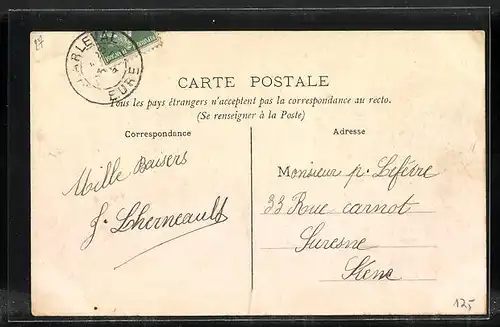 CHARLEVAL
EURE
CARTE POSTALE
Tous les pays étrangers n'acceptent pas la correspondance au recto.
(Se renseigner à la Poste)
Correspondance
Adresse
Mille Baisers
J. Lherneault
Monsieur p. Lefévre
33 Rue carnot
Suresne
Siene
125